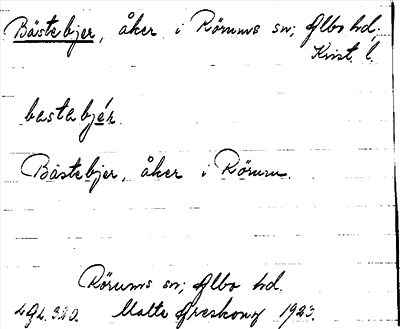 Bästebjer, åker i Rörums sn; Albo hd.
Krist. l.
bastabjér
Bästebjer, åker i Rörum.
Rörums sn; Albo hd.
Malte Areskong 1923.